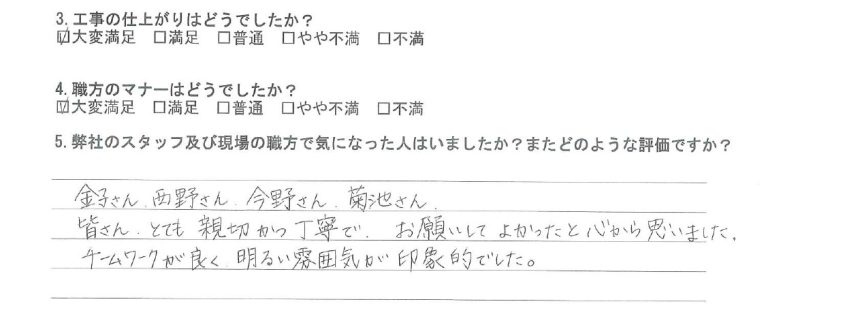 3. 工事の仕上がりはどうでしたか？
☑大変満足 □満足 □普通 □やや不満 □不満
4. 職方のマナーはどうでしたか？
☑大変満足 □満足 □普通 □やや不満 □不満
5. 弊社のスタッフ及び現場の職方で気になった人はいましたか？またどのような評価ですか？
金子さん、西野さん、今野さん、菊池さん、
皆さん、とても親切かつ丁寧で、お願いしてよかったと心から思いました。
チームワークが良く、明るい雰囲気が印象的でした。